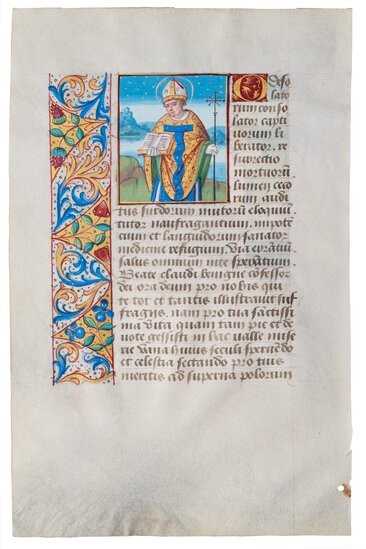 O deso
lato
rum conso
lator capti
uorum li
berator. re
surrectio
mortuorū.
lumen ceco
rum audi
tus surdorum mutorū eloquiū
tutor naufragantium. impotē
tum et languidorum sanator
medicine refugium. Via errātiū
salus omnium in te sperantium.
Beate claudi benigne confessor
dei ora deum pro nobis qui
te tot et tantis illustrauit suf
fragiis. nam pro tua sāctissi
ma vita quam tam pie et de
uote gessisti in hac valle mise
rie vana huius seculi spernēdo
et celestia sectando pro tuis
meritis ad superna polorum